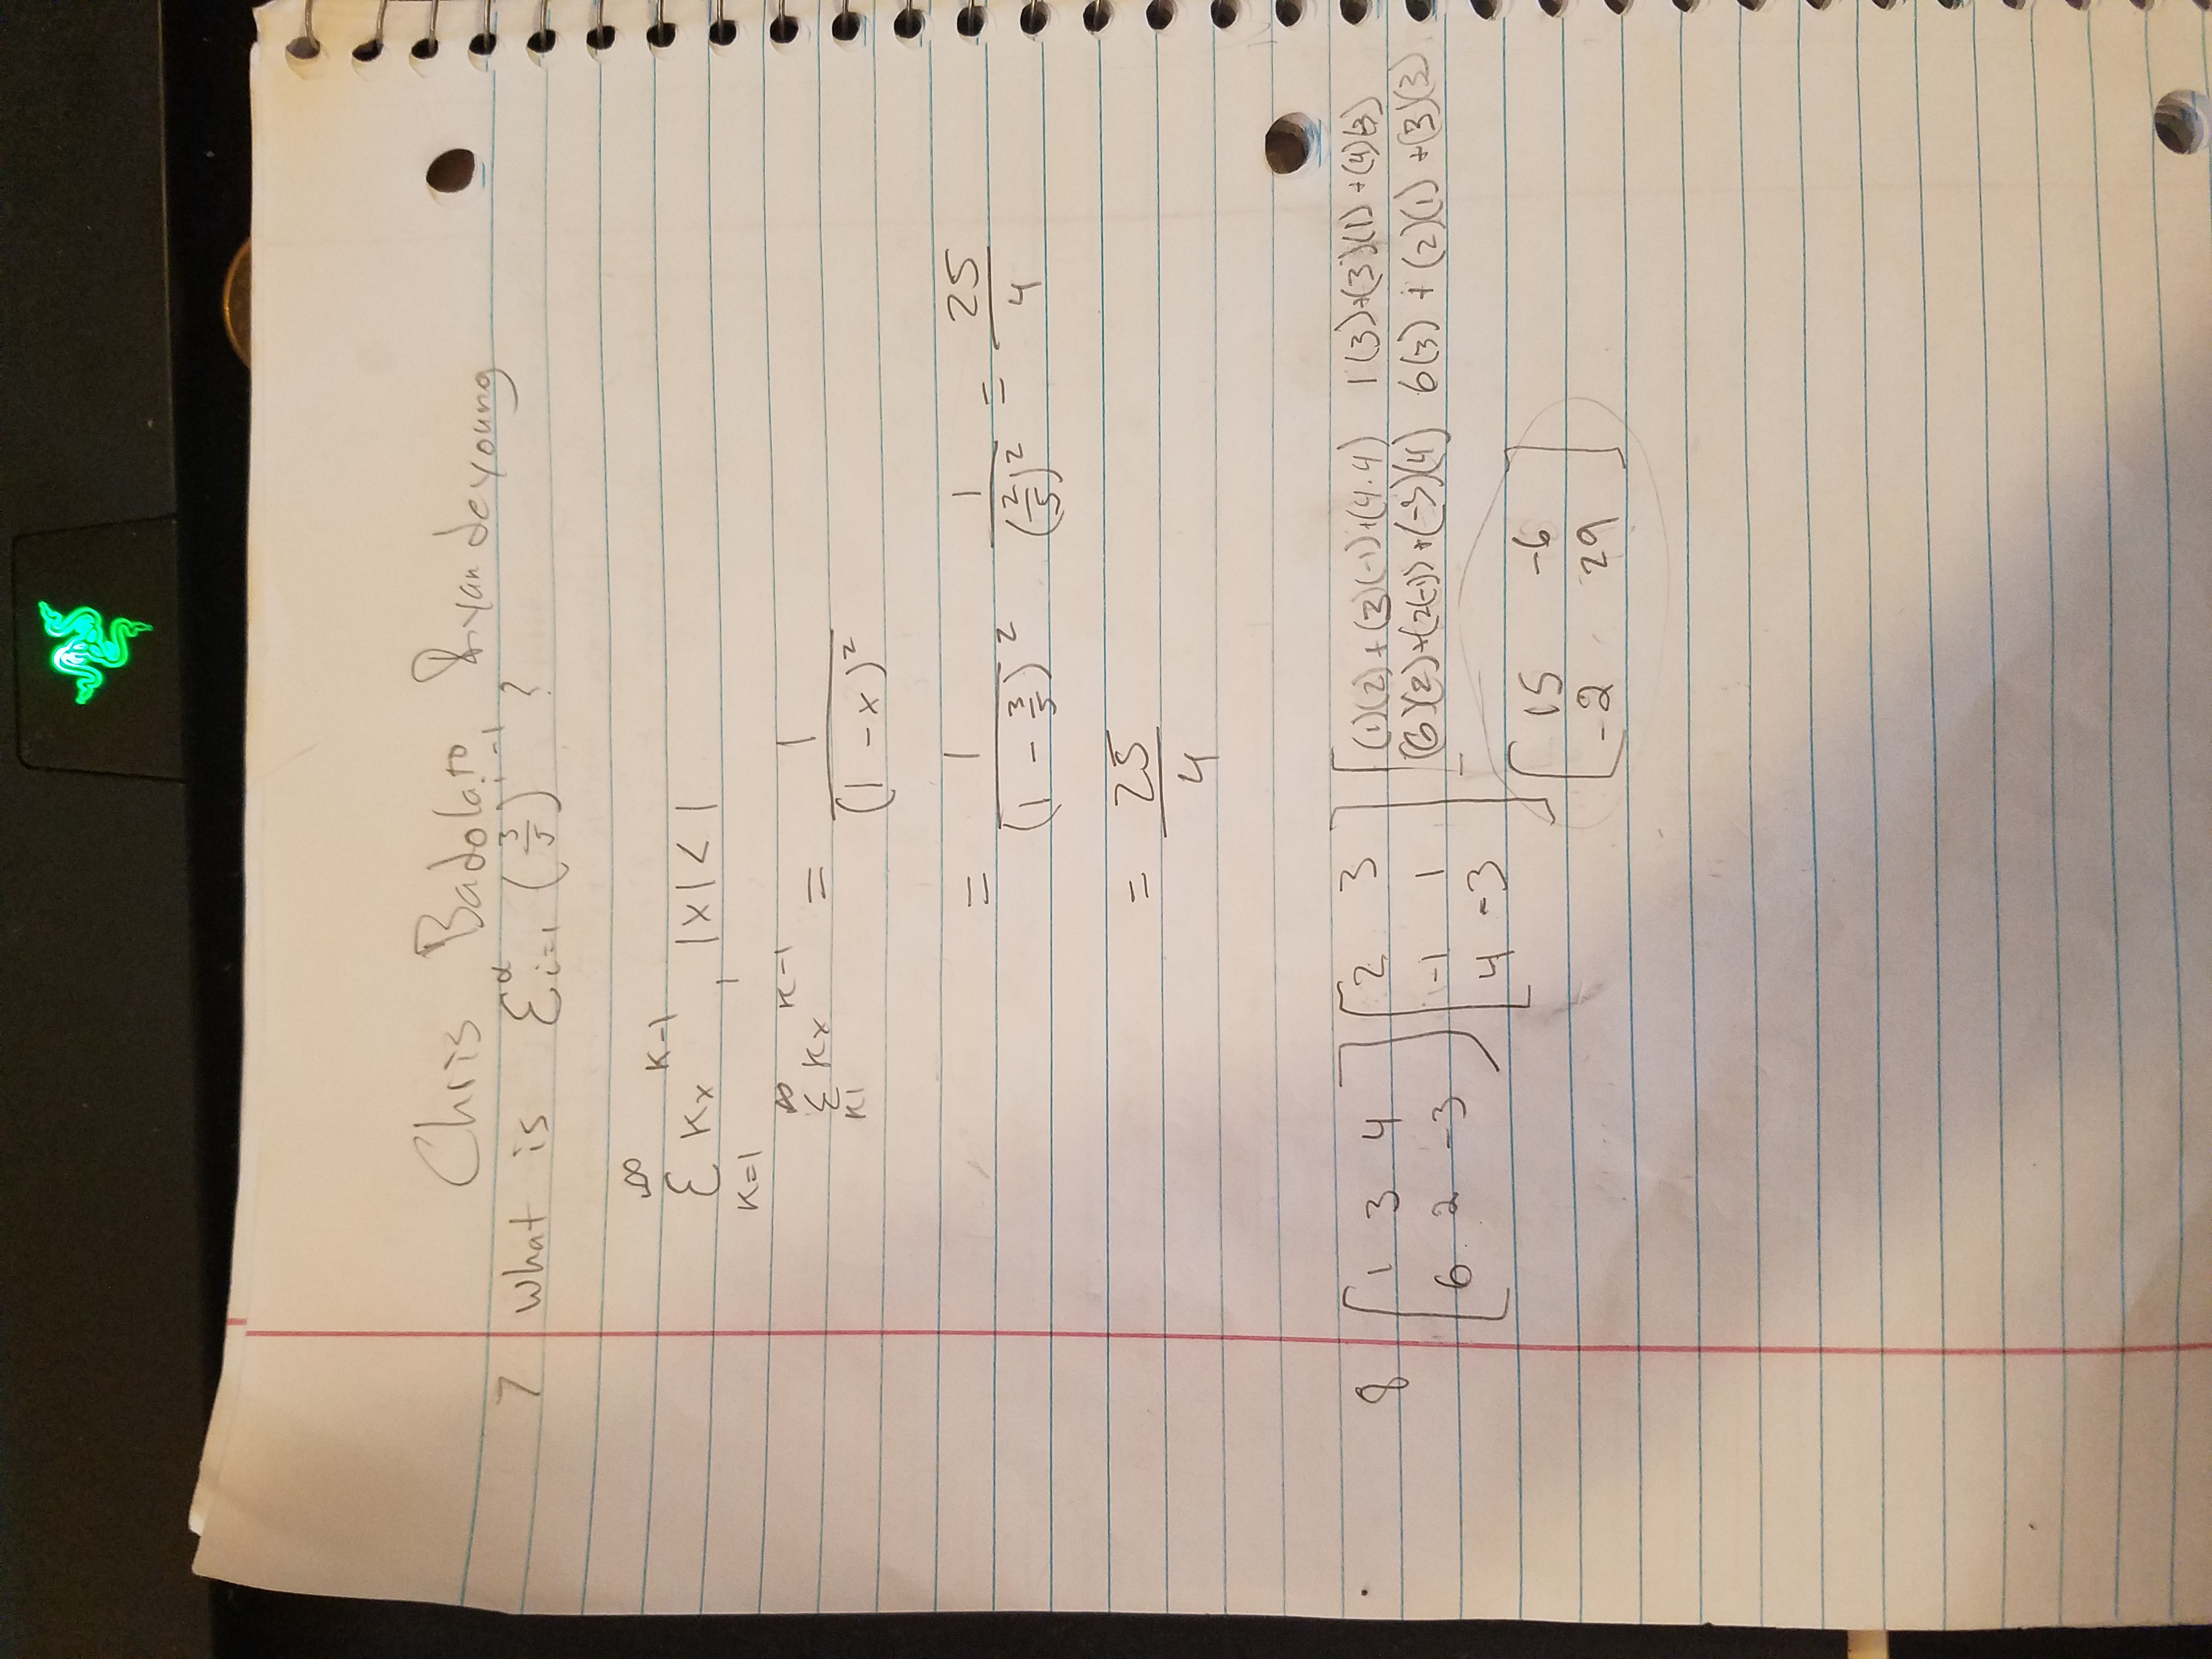 Chris Badolato Ryan deyoung
7 What is Σ^α i=1 (3/5)^i-1 ?
∞
Σ Kx^K-1 , |x| < 1
K=1
∞
Σ Kx^K-1 = 1/(1 - x)²
K1
= 1/(1 - 3/5)² 1/(2/5)² = 25/4
= 25/4
8 [1 3 4 [2 3 [(1)(2) + (3)(-1) + (4.4) 1(3)+(3)(1) + (4)(-3)
6 2 -3] -1 1 (6)(2)+(2(-1))+(-3)(4) 6(3) + (2)(1) +(3)(3)
4 -3]
[15 -6
-2 29]